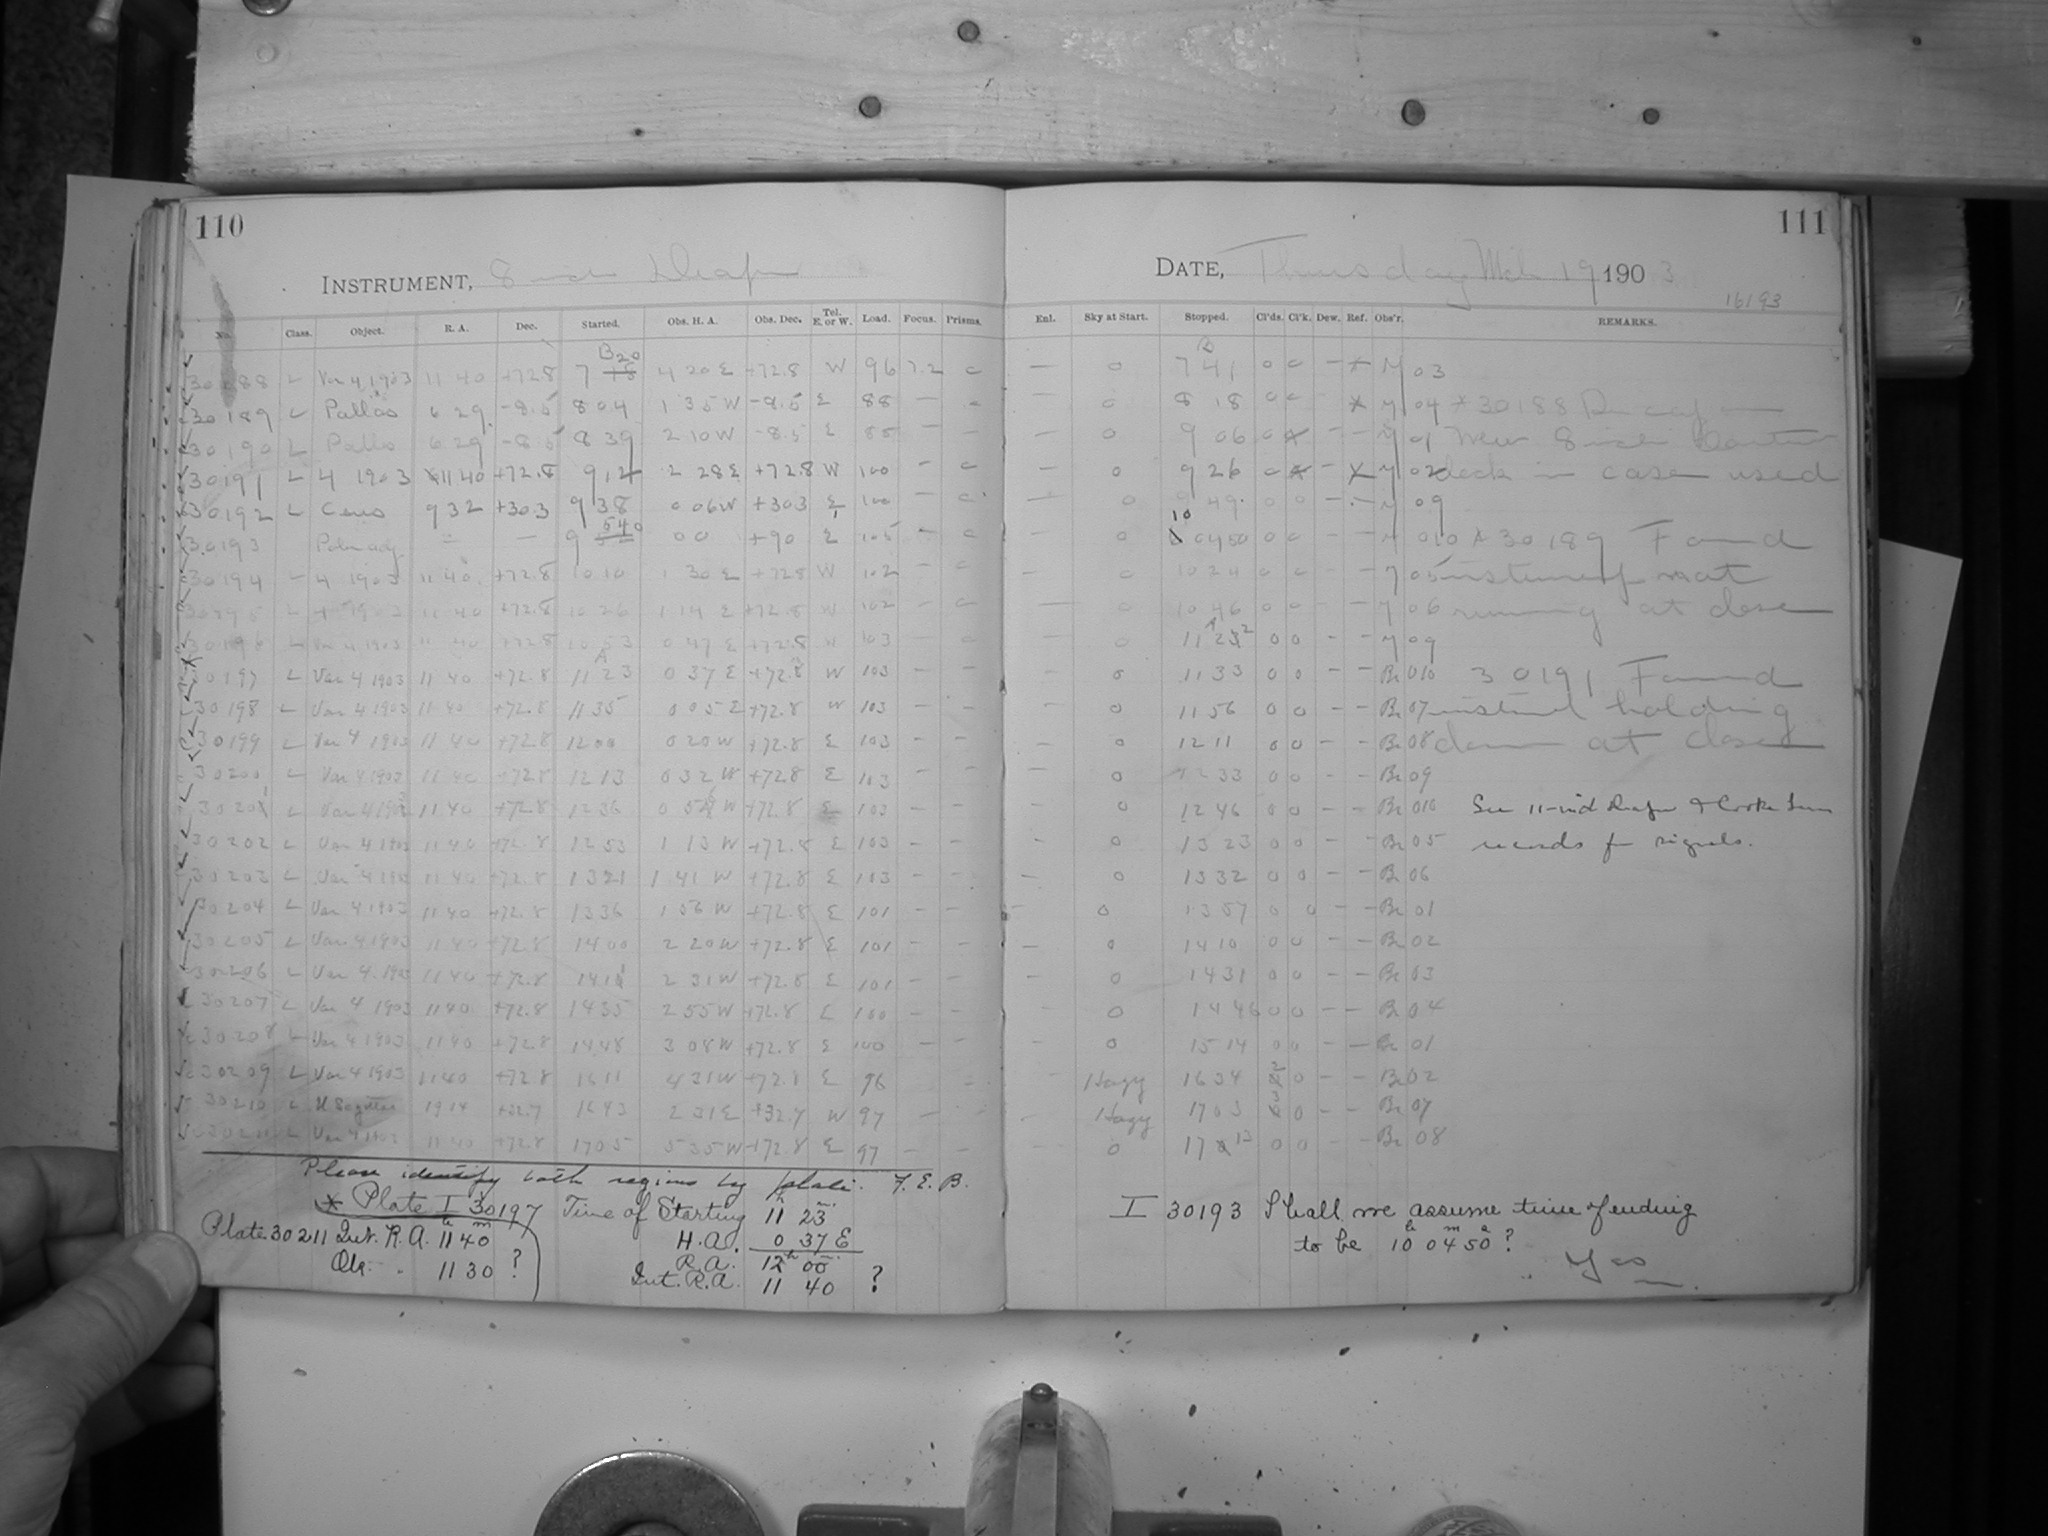 110
111
INSTRUMENT, 8 inch Draper
DATE, Thursday Mch 19 1903
16193
No. Class. Object. R. A. Dec. Started. Obs. H. A. Obs. Dec. Tel. E. or W. Load. Focus. Prisms. Enl. Sky at Start. Stopped. Cl'ds. Cl'k. Dew. Ref. Obs'r. REMARKS.
30188 L Var 4 1903 11 40 +72.8 7 20 4 20 E +72.8 W 96 7.2 0 — 0 7 41 0 0 — * M 03
30189 L Pallas 6 29 -8.5 8 04 1 35 W -8.5 E 88 — 0 8 18 0 0 — * M 04 * 30188
30190 L Pallas 6 29 -8.5 8 39 2 10 W -8.5 E 88 — — — 0 9 06 0 — — M 01 New 8 inch
30191 L 4 1903 11 40 +72.8 9 12 2 28 E +72.8 W 100 — 0 — 0 9 26 0 — M 02 clock in case used
30192 L 9 32 +30.3 9 38 0 06 W +30.3 E 100 — 0 — 0 9 49 0 0 — M 09
30193 — 9 540 0 0 +90 E 105 — 0 — 0 10 04 50 0 0 — — M 010 * 30189 Found
30194 — 4 1903 11 40 +72.8 10 10 1 30 E +72.8 W 102 — 0 — 0 10 24 0 0 — — M 05 not
4 1903 11 40 +72.8 10 26 1 14 E +72.8 W 102 — 0 — 0 10 46 0 0 — — M 06 running at close
30196 L Var 4 1903 11 40 +72.8 10 53 0 47 E +72.8 W 103 — 0 — 0 11 0 0 — — M 09
30197 L Var 4 1903 11 40 +72.8 11 23 0 37 E +72.8 W 103 — — — 0 11 33 0 0 — — Br 010 30191 Found
30198 L Var 4 1903 11 40 +72.8 11 35 0 05 E +72.8 W 103 — — — 0 11 56 0 0 — — Br 07 holding
30199 L Var 4 1903 11 40 +72.8 12 00 0 20 W +72.8 E 103 — — — 0 12 11 0 0 — — Br 08 down at close
30200 L Var 4 1903 11 40 +72.8 12 13 0 32 W +72.8 E 103 — — — 0 12 33 0 0 — — Br 09
30201 L Var 4 1903 11 40 +72.8 12 36 0 W +72.8 E 103 — — — 0 12 46 0 0 — — Br 010 See 11-inch Draper & Cooke Lens
30202 L Var 4 1903 11 40 +72.8 12 53 1 13 W +72.8 E 103 — — — 0 13 23 0 0 — — Br 05 records for signals.
30203 L Var 4 1903 11 40 +72.8 13 21 1 41 W +72.8 E 103 — — — 0 13 32 0 0 — — Br 06
30204 L Var 4 1903 11 40 +72.8 13 36 1 56 W +72.8 E 101 — — — 0 13 57 0 0 — — Br 01
30205 L Var 4 1903 11 40 +72.8 14 00 2 20 W +72.8 E 101 — — — 0 14 10 0 0 — — Br 02
30206 L Var 4 1903 11 40 +72.8 14 11 2 31 W +72.8 E 101 — — — 0 14 31 0 0 — — Br 03
30207 L Var 4 1903 11 40 +72.8 14 35 2 55 W +72.8 E 100 — — — 0 14 46 0 0 — — Br 04
30208 L Var 4 1903 11 40 +72.8 14 48 3 08 W +72.8 E 100 — — — 0 15 14 0 0 — — Br 01
30209 L Var 4 1903 11 40 +72.8 16 11 4 31 W +72.8 E 96 — — Hazy 16 34 2 0 — — Br 02
30210 L U Sagittae 19 14 16 43 2 31 E W 97 — — — Hazy 17 03 3 0 — — Br 07
30211 L Var 4 1903 11 40 +72.8 17 05 5 35 W +72.8 E 97 — — — 0 17 13 0 0 — — Br 08
Please identify both regions by plate. F. E. B.
* Plate I 30197 Time of Starting 11 h 23 m
Plate 30211 Int. R. A. 11 h 40 m H. A. 0 37 E
Obs. " 11 30 ? R. A. 12 h 00 m
Int. R. A. 11 40 ?
I 30193 Shall we assume time of ending
to be 10 h 04 m 50 s ?
Yes